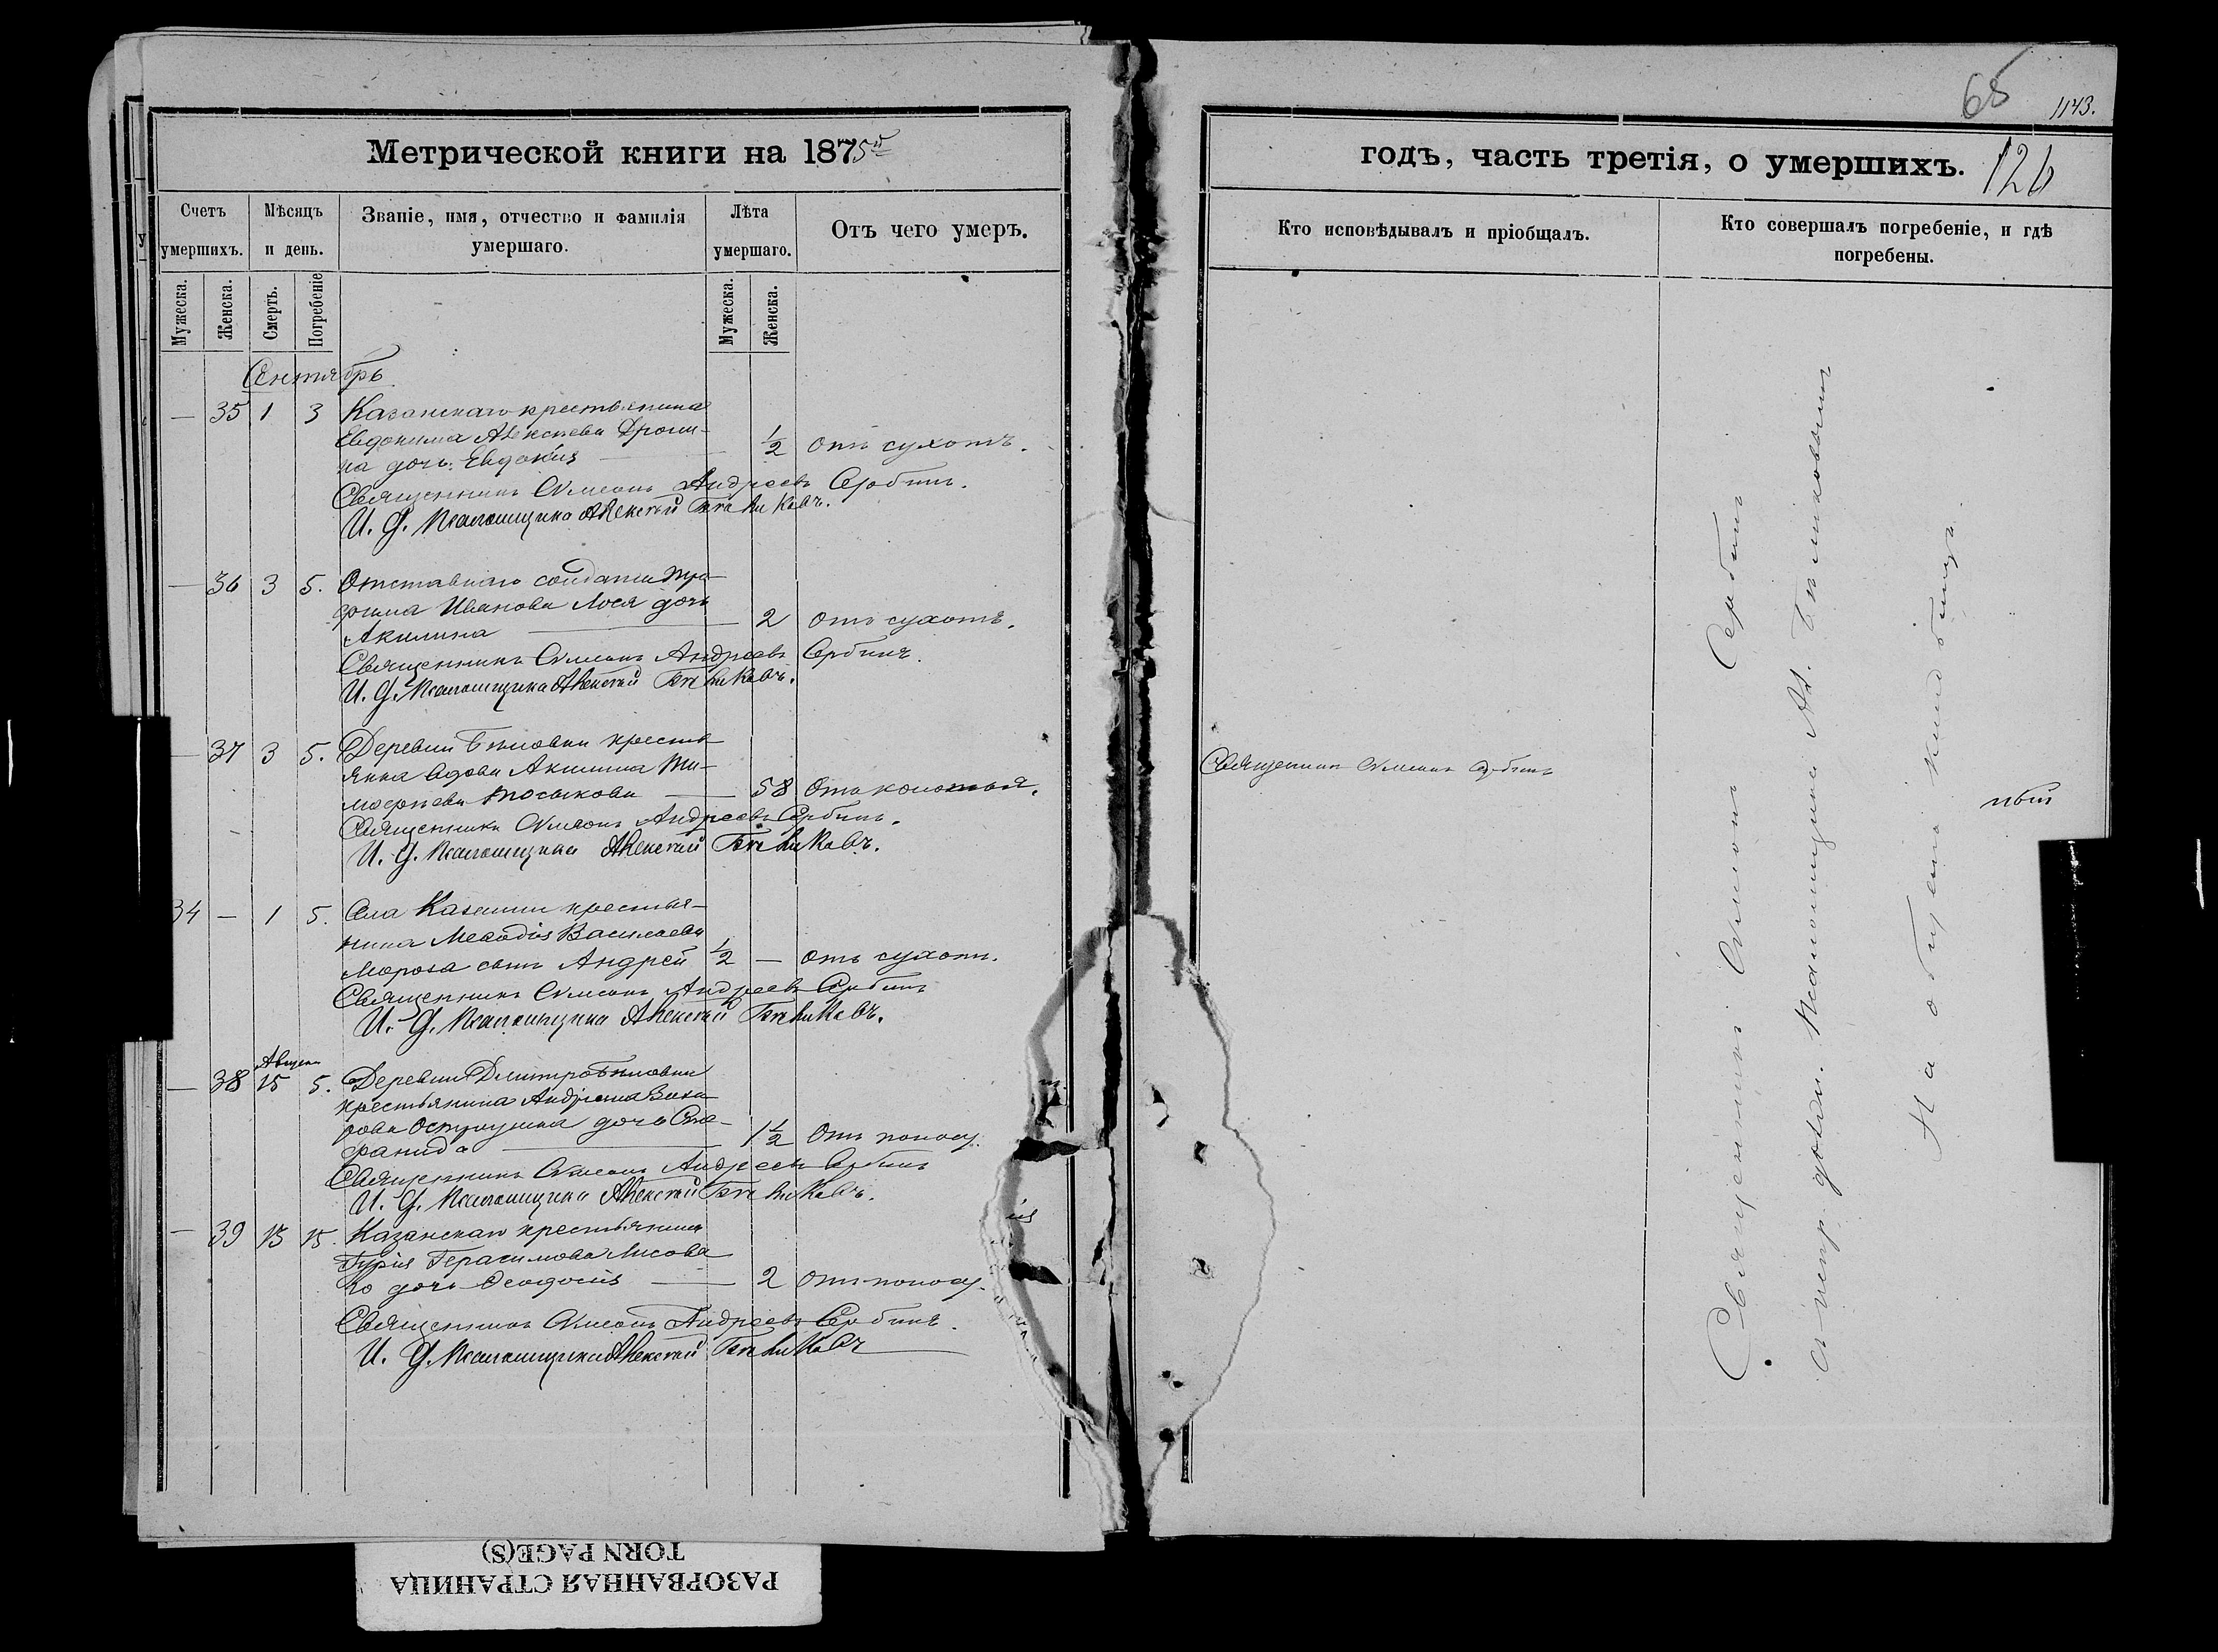 65
1143.
Метрической книги на 1875й
годъ, часть третія, о умершихъ.
126
Счетъ умершихъ.
Мѣсяцъ и день.
Званіе, имя, отчество и фамилія умершаго.
Лѣта умершаго.
Отъ чего умеръ.
Кто исповѣдывалъ и пріобщалъ.
Кто совершалъ погребеніе, и гдѣ погребены.
Мужеска.
Женска.
Смерть.
Погребеніе
Мужеска.
Женска.
Сентябрь
— 35 1 3 Казанскаго крестьянина
Евдокима Алексѣева
на дочь Евдокія — 1/2 отъ сухотъ.
Священникъ Симеонъ Андреевъ Сербинъ.
И. д. Псаломщика Алексѣй Бѣликовъ.
— 36 3 5. Отставнаго солдата Тро-
фима Иванова Лося дочь
Акилина — 2 отъ сухотъ.
Священникъ Симеонъ Андреевъ Сербинъ.
И. д. Псаломщика Алексѣй Бѣликовъ.
— 37 3 5. Деревни Бѣловки кресть
янка вдова Акилина Ти-
моѳеева — 58 Отъ колотья.
Священникъ Симеонъ Андреевъ Сербинъ.
И. д. Псаломщика Алексѣй Бѣликовъ.
34 — 1 5. Села Казанки крестья-
нина Меѳодія Василіева
Мороза сынъ Андрей 1/2 — отъ сухотъ.
Священникъ Симеонъ Андреевъ Сербинъ
И. д. Псаломщика Алексѣй Бѣликовъ.
Августа
— 38 25 5. Деревни Дмитробѣловки
крестьянина Андріана
дочь Сте-
фанида — 1 1/2 Отъ поносу.
Священникъ Симеонъ Андреевъ Сербинъ
И. д. Псаломщика Алексѣй Бѣликовъ.
— 39 13 15. Казанскаго крестьянина
Гурія Герасимова Лисова
го дочь Ѳеодосія — 2 Отъ поносу.
Священникъ Симеонъ Андреевъ Сербинъ.
И. д. Псаломщика Алексѣй Бѣликовъ
Священникъ Симеонъ Сербинъ
Священникъ Симеонъ Сербинъ
съ испр. долж. Псаломщика Ал. Бѣликовымъ
На общемъ кладбищѣ
РАЗОРВАННАЯ СТРАНИЦА
TORN PAGE(S)